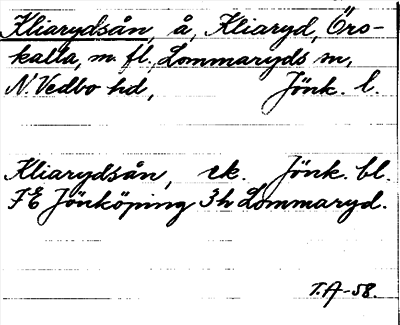 Kliarydsån, å, Kliaryd, Öro-
kalla, m. fl., Lommaryds sn,
N. Vedbo hd, Jönk. l.
Kliarydsån, ek. Jönk. bl.
7E Jönköping 3h Lommaryd.
T.A-58.